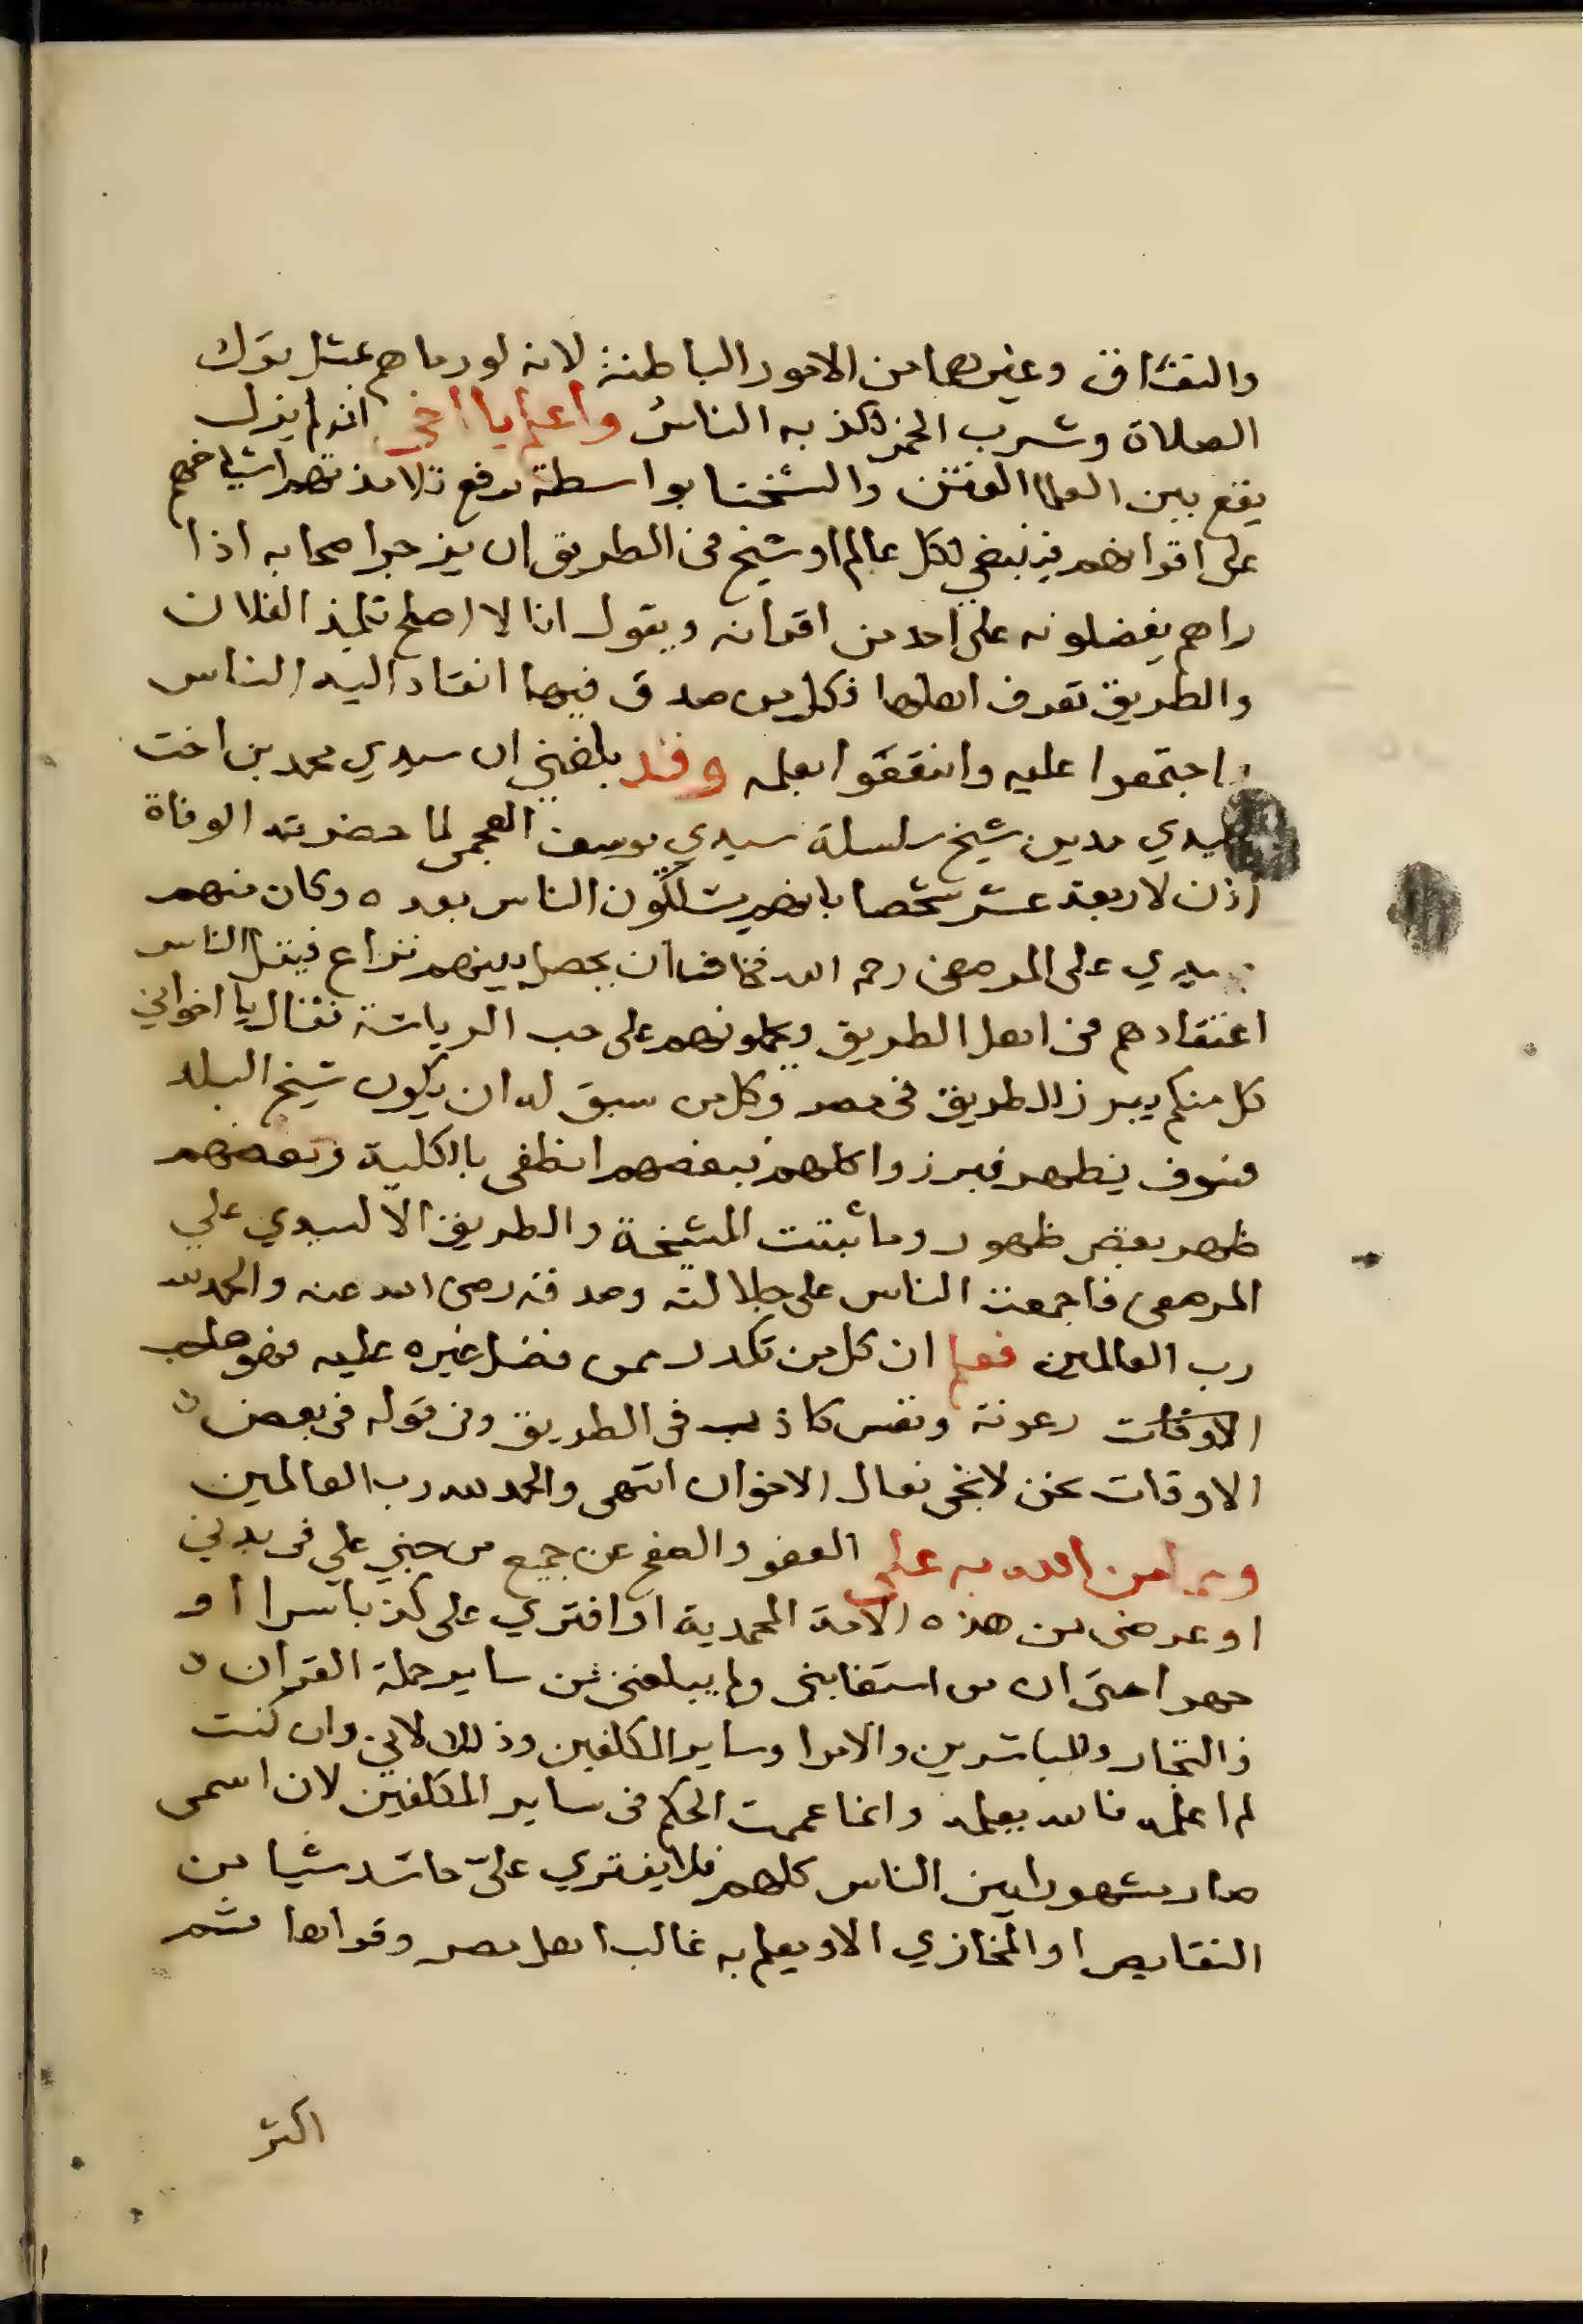 والنفاق وغيرهما من الامور الباطنة لانه لو رماهم بمثل ترك
الصلاة وشرب الخمر لكذبه الناس واعلم يا اخي انه لم يزل
يقع بين العلما الفتن والشحنا بواسطة رفع تلامذتهم اشياخهم
على اقرانهم فينبغي لكل عالم او شيخ في الطريق ان يزجر اصحابه اذا
راهم يفضلونه على احد من اقرانه ويقول انا لا اصلح تلميذا لفلان
والطريق تعرف اهلها فكل من صدق فيها انقاد اليه الناس
واجتمعوا عليه وانتفعوا بعلمه وقد بلغني ان سيدي محمد بن اخت
سيدي مدين شيخ سلسلة سيدي يوسف العجمي لما حضرته الوفاة
اذن لاربعة عشر شخصا بانهم يسلكون الناس بعده وكان منهم
سيدي على المرصفي رحمه الله فخافت ان يحصل بينهم نزاع فيقل الناس
اعتقادهم في اهل الطريق ويحملونهم على حب الرياسة فقال يا اخواني
كل منكم يبرز للطريق في مصر وكل من سبق له ان يكون شيخ البلد
فسوف يظهر فبرزوا كلهم فبعضهم انطفى بالكلية وبعضهم
ظهر بعض ظهور وما ثبتت المشيخة والطريق الا لسيدي علي
المرصفي فاجمعت الناس على جلالته وصدقه رضي الله عنه والحمد لله
رب العالمين فعلم ان كل من تكدر ممن فضل غيره عليه فهو صاحب
الاوقات رعونة ونفس كاذب في الطريق وفي قوله في بعض
الاوقات نحن لا نجي نعال الاخوان انتهى والحمد لله رب العالمين
ومما من الله به علي العفو والصفح عن جميع من جنى علي في بدني
او عرضي من هذه الامة المحمدية او افترى علي كذبا سرا او
جهرا حتى ان من استغابني ولم يبلغني من ساير حملة القران
والتجار والمباشرين والامرا وساير المكلفين وذلك لاني وان كنت
لم اعلمه فالله يعلمه وانما عممت الحكم في ساير المكلفين لان اسمي
صار مشهورا بين الناس كلهم فلا يفتري علي حاسد شيا من
النقايص او المخازي الا ويعلم به غالب اهل مصر وقراها ثم
اكثر